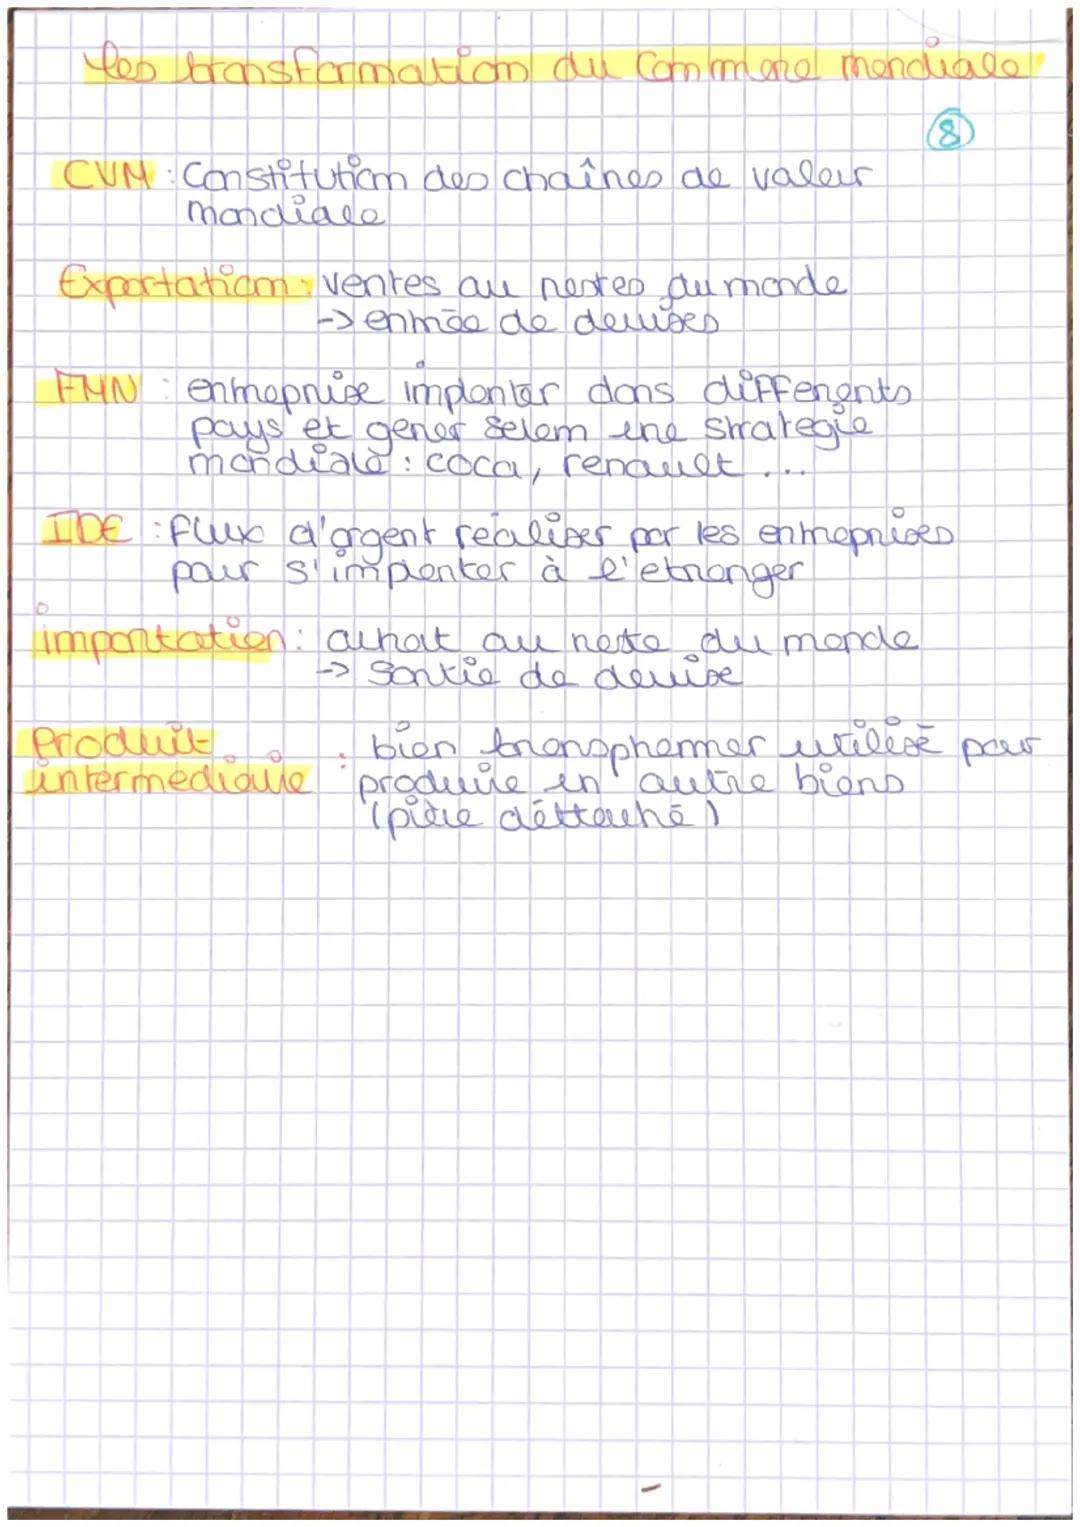 Les transformation du Commerce mondiale
8
CVM : Constitution des chaînes de valeur
mondiale
Exportation : ventes au restes du monde
-> entrée de devises
FMN : entreprise implanter dans différents
pays et gener selom une strategie
mondiale : coca, renault ...
IDE : flux d'argent realiser par les entreprises
pour s'implenter à l'etranger
importation : achat au reste du monde
-> Sortie de devise
Produit
intermédiaire : bien transphormer utilisé pour
produire un autre biens
(pièce déttaché)